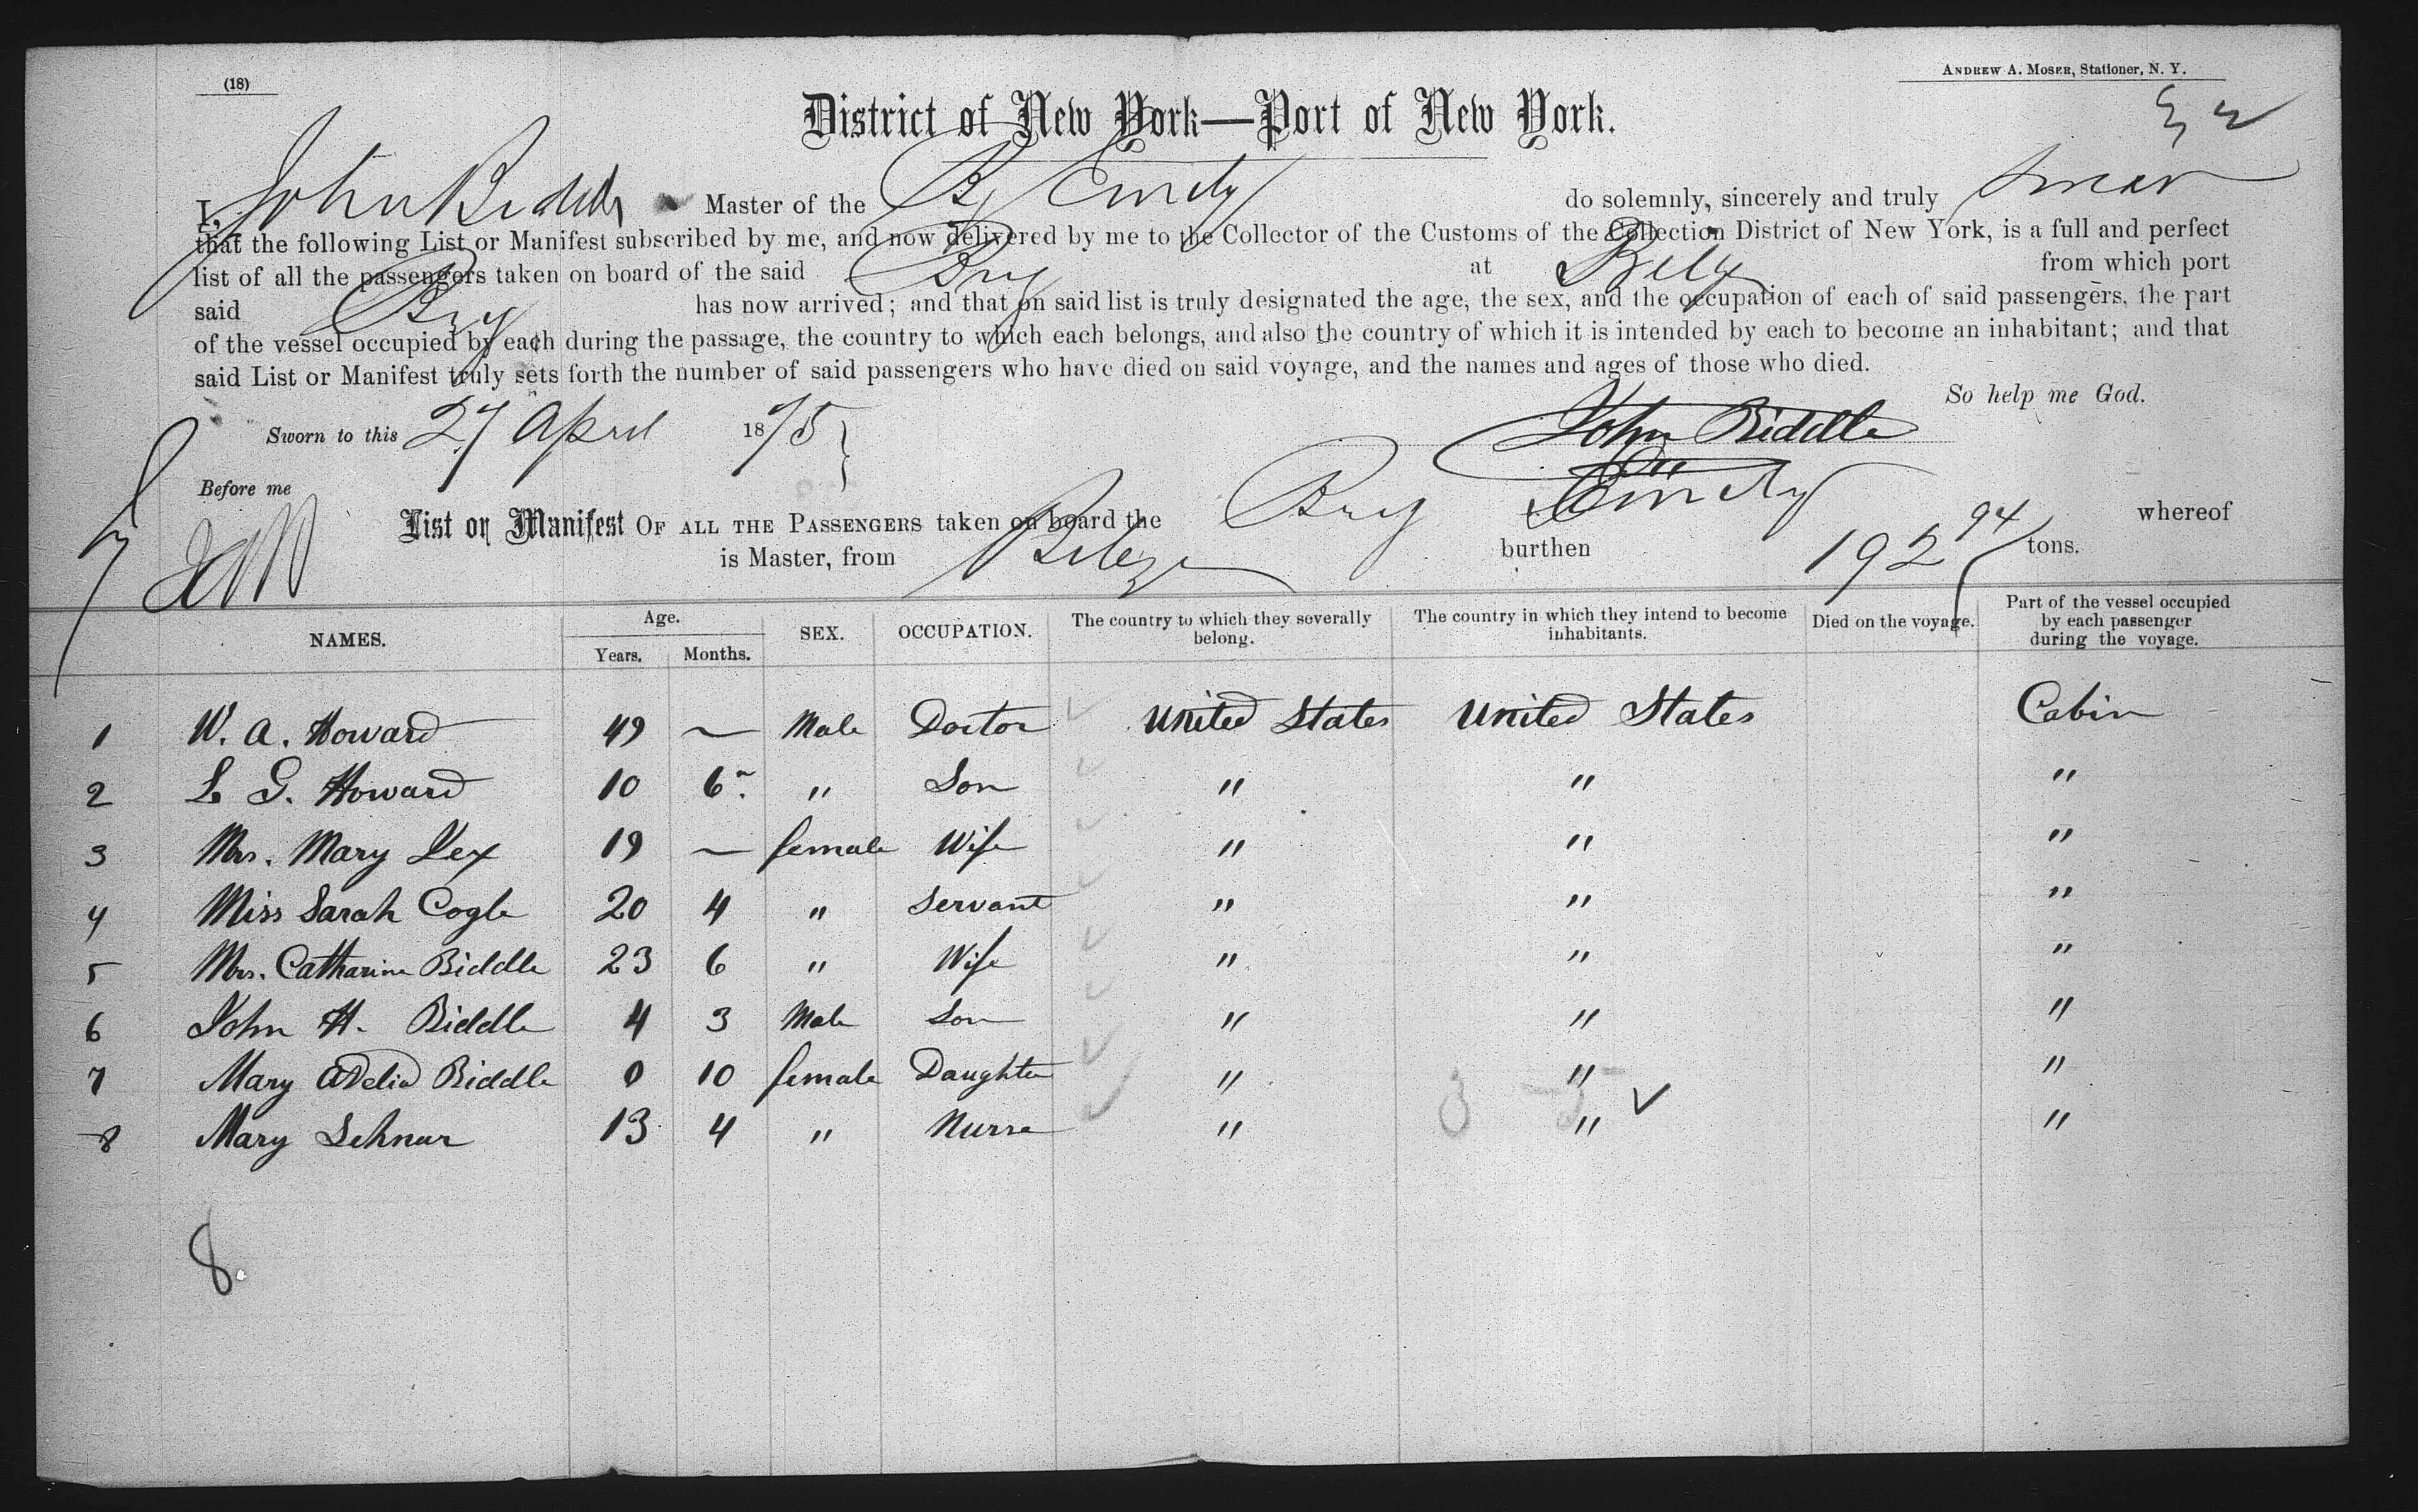 (18)
ANDREW A. MOSER, Stationer, N. Y.
District of New York—Port of New York.
I, John Biddle Master of the Bg Emily do solemnly, sincerely and truly swear
that the following List or Manifest subscribed by me, and now delivered by me to the Collector of the Customs of the Collection District of New York, is a full and perfect
list of all the passengers taken on board of the said Brig at Belize from which port
said Brig has now arrived; and that on said list is truly designated the age, the sex, and the occupation of each of said passengers, the part
of the vessel occupied by each during the passage, the country to which each belongs, and also the country of which it is intended by each to become an inhabitant; and that
said List or Manifest truly sets forth the number of said passengers who have died on said voyage, and the names and ages of those who died.
So help me God.
Sworn to this 27 April 1875 John Biddle
Before me
List or Manifest OF ALL THE PASSENGERS taken on board the Brig Emily whereof
is Master, from Belize burthen 192 94 tons.
NAMES. Age. Years. Months. SEX. OCCUPATION. The country to which they severally belong. The country in which they intend to become inhabitants. Died on the voyage. Part of the vessel occupied by each passenger during the voyage.
1 W. A. Howard 49 — Male Doctor United States United States Cabin
2 L G. Howard 10 6 " Son " " "
3 Mrs. Mary Lex 19 — female Wife " " "
4 Miss Sarah Cogle 20 4 " Servant " " "
5 Mrs. Catharine Biddle 23 6 " Wife " " "
6 John H. Biddle 4 3 Male Son " " "
7 Mary Adelia Biddle 0 10 female Daughter " " "
8 Mary Lehnar 13 4 " Nurse " " "
8